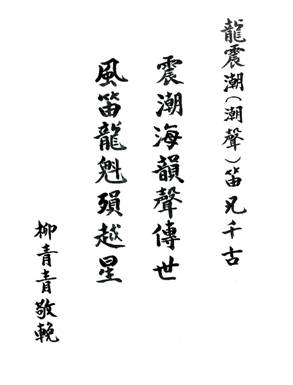 龍震潮(潮聲)笛兄千古
震潮海韻聲傳世
風笛龍魁殞越星
柳青青敬輓